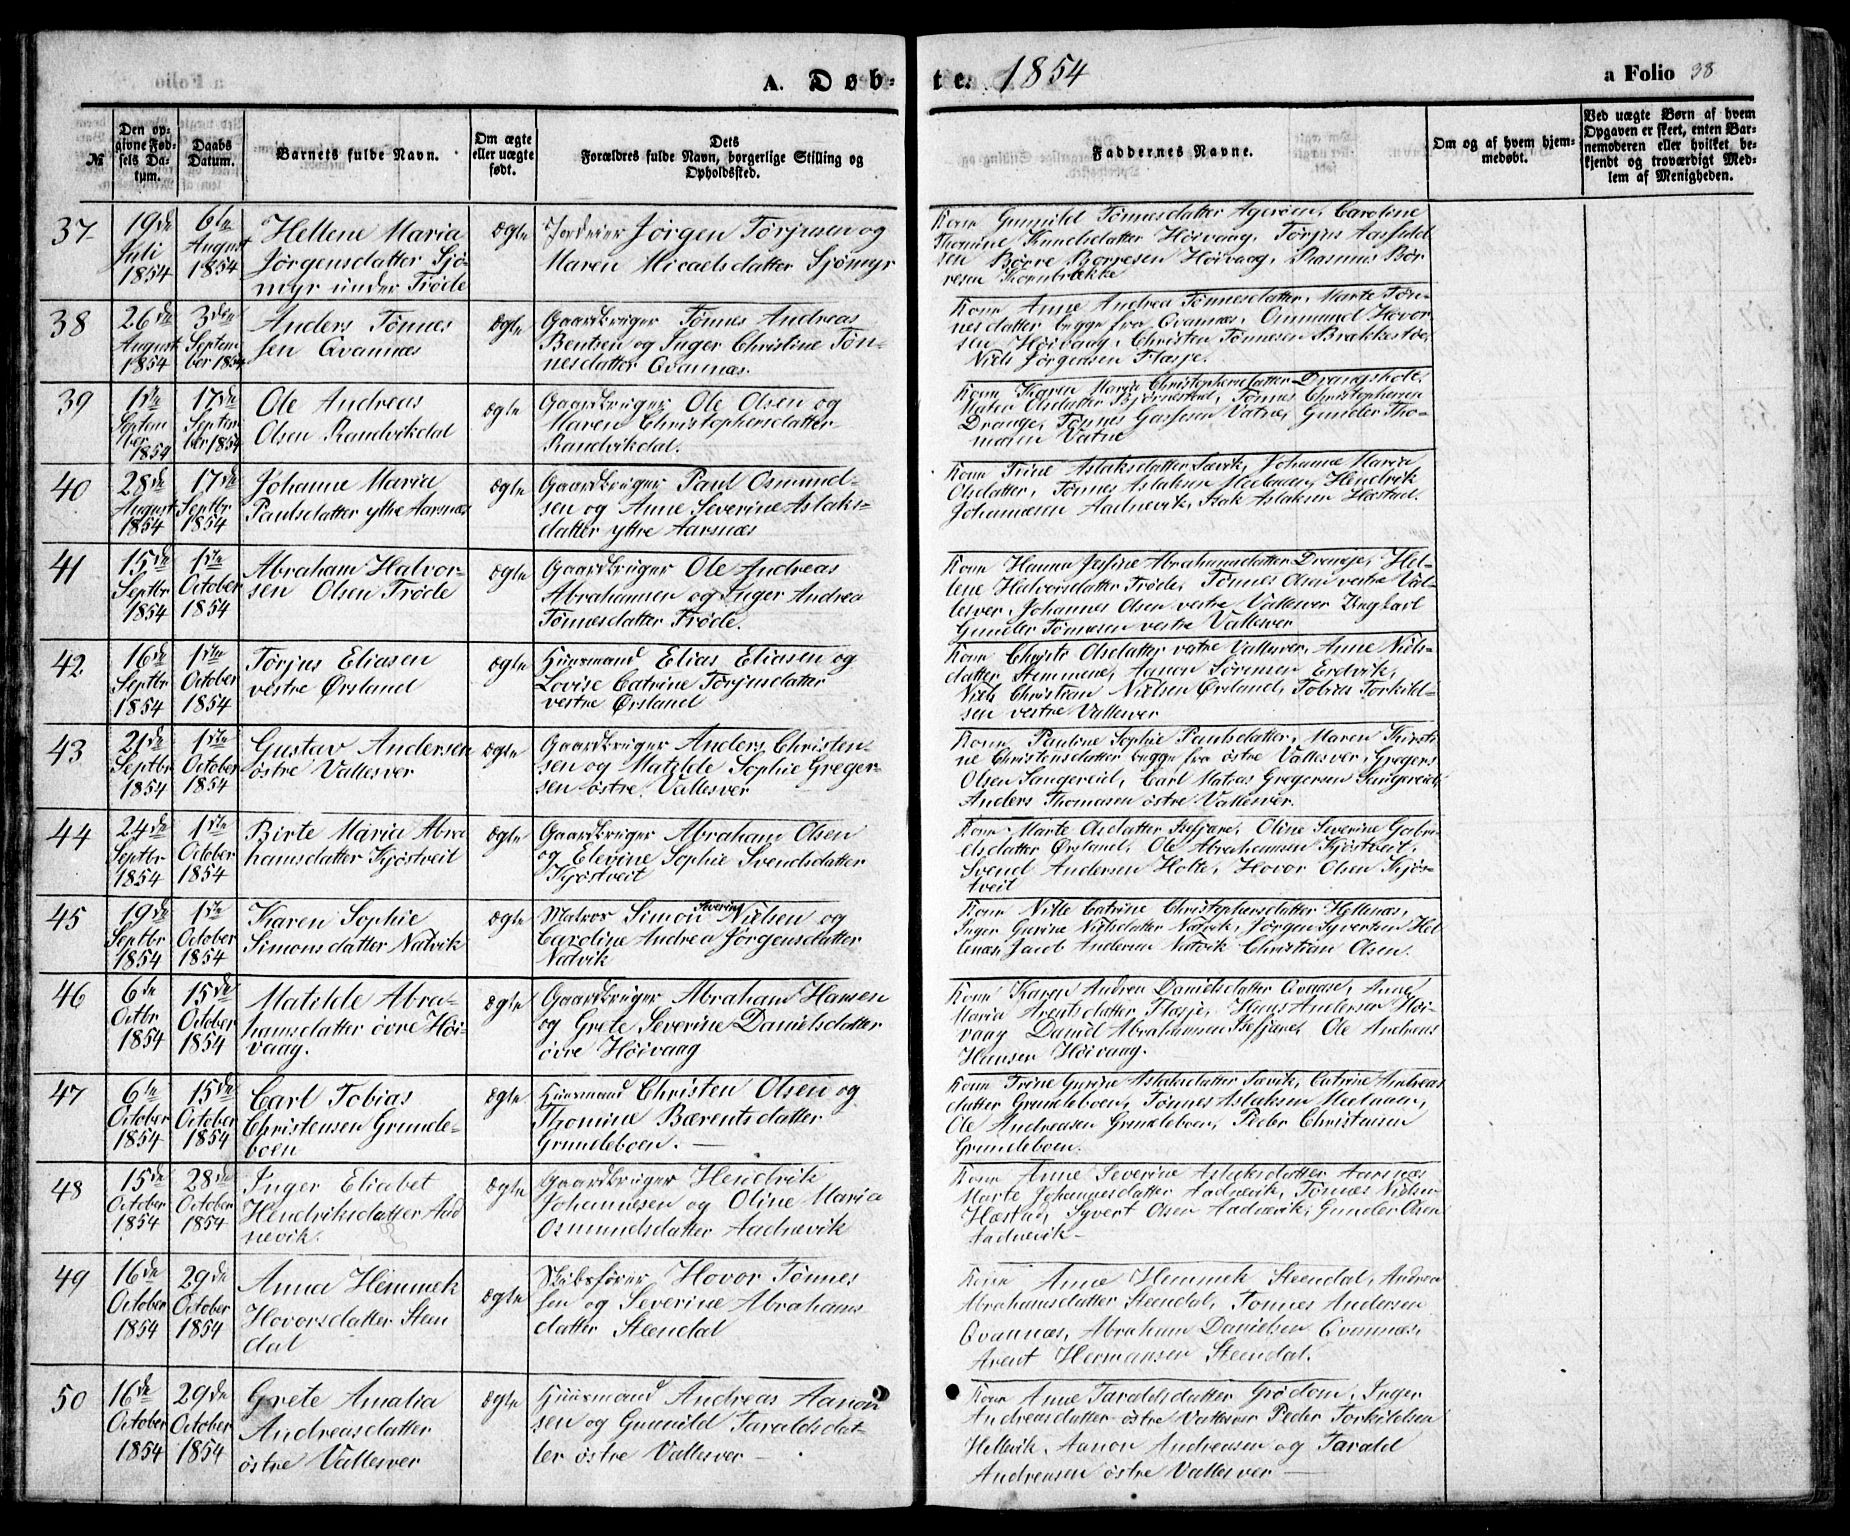 A. Døb=
te. 1854
a Folio 38
№
Den op=
givne Fød=
sels Da=
tum.
Daabs
Datum.
Barnets fulde Navn.
Om ægte
eller uægte
født.
Dets
Forældres fulde Navn, borgerlige Stilling og
Opholdssted.
Faddernes Navne.
Om og af hvem hjem=
medøbt.
Ved uægte Børn af hvem
Opgaven er skeet, enten Bar=
nemoderen eller hvilket be=
kjendt og troværdigt Med=
lem af Menigheden.
37
19de
Juli
1854
6te
August
1854
Hellene Maria
Jørgensdatter Sjö-
myr under Trøde
ægte
Jordeier Jörgen Törjusen og
Maren Micaelsdatter Sjömyr
Kone Gunild Tönnesdatter Ageröen, Caroline
Thomine Knudsdatter Höivaag, Törjus
sen Börre Börresen Höivaag, Rasmus Bör
resen
38
26de
August
1854
3die
Septem
ber 1854
Anders Tönnes
sen Qvannæs
ægte
Gaardbruger Tönnes Andreas
Bentsen og Inger Christine Tön-
nesdatter Qvannæs.
Kone Anne Andrea Tönnesdatter, Marte Tön-
nesdatter begge fra Qvannæs, Ommund Hovor
sen Höivaag, Christen Tönnesen Brækkestöe,
Niels Jörgensen Flasje.
39
1ste
Septem
ber
1854
17de
Septem
ber 1854
Ole Andreas
Olsen Randvikdal
ægte
Gaardbruger Ole Olsen og
Maren Christophersdatter
Randvikdal.
Kone Karen Maria Christophersdatter Drangsholt,
Maren Olsdatter Björnestad, Tönnes Christophersen
Drange, Tönnes Gassesen Vatne, Gunder Tho-
masen Vatne
40
28de
August
1854
17de
Septbr
1854
Johanne Maria
Paulsdatter yttre Aarsnæs
ægte
Gaardbruger Paul Osmund-
sen og Anne Severine Aslaks-
datter yttre Aarsnæs
Kone Trine Aslaksdatter Sævik, Johanne Maria
Olsdatter, Tönnes Aslaksen Mælaaen, Hendrik
Johannesen Aadnevik, Isak Aslaksen Hæstad.
41
15de
Septbr
1854
1ste
October
1854
Abraham Halvor-
sen Olsen Trøde
ægte
Gaardbruger Ole Andreas
Abrahamsen og Inger Andrea
Tönnesdatter Trøde.
Kone Hanna Jesine Abrahamsdatter Drange, Hel-
lene Halvorsdatter Trøde, Tönnes Olsen vestre Val-
lesver, Johannes Olsen vestre Vallesver Ungkarl
Gunder Tönnesen vestre Vallesver
42
16de
Septbr
1854
1ste
October
1854
Törjus Eliasen
vestre Ørsland
ægte
Huusmand Elias Eliasen og
Lovise Catrine Törjusdatter
vestre Ørsland
Kone Christi Olsdatter vestre Vallesver, Anne Niels-
datter Stemmene, Aanon Sörensen Eedvik,
Niels Christian Nielsen Ørsland, Tobias Torkild-
sen vestre Vallesver
43
21de
Septbr
1854
1ste
October
1854
Gustav Andersen
østre Vallesver
ægte
Gaardbruger Anders Christen-
sen og Matilde Sophie Greger-
sen østre Vallesver
Kone Pauline Sophie Paulsdatter, Maren Kirsti-
ne Christensdatter begge fra østre Vallesver, Gregers
Olsen Sangereid, Carl Matias Gregersen Sangereid,
Anders Thomasen østre Vallesver.
44
24de
Septbr
1854
1ste
October
1854
Birte Maria Abra
hamsdatter Kjöstveit
ægte
Gaardbruger Abraham Olsen
og Elevine Sophie Svendsdatter
Kjöstveit
Kone Marte Olsdatter Isefjære, Oline Severine Gabri-
elsdatter Ørsland, Ole Abrahamsen Kjöstveit,
Svend Andersen Holte, Hovor Olsen Kjös-
tveit
45
19de
Septbr
1854
1ste
October
1854
Karen Sophie
Simonsdatter Natvik
ægte
Matros Simon Severin Nielsen og
Caroline Andrea Jörgensdatter
Natvik
Kone Nille Catrine Christophersdatter Hellenæs,
Inger Gurine Nielsdatter Natvik, Jörgen Syvertsen Hel
lenæs, Jacob Andersen Natvik Christian Olsen.
46
6te
Octbr
1854
15de
October
1854
Matilde Abra-
hamsdatter övre Höi-
vaag.
ægte
Gaardbruger Abraham Hansen
og Grete Severine Danielsdatter
övre Höivaag
Kone Karen Andrea Danielsdatter Qvaase, Anne
Maria Arentsdatter Flasje, Hans Andersen Höi-
vaag Daniel Abrahamsen Isefjære, Ole Andreas
Hansen Höivaag.
47
6te
October
1854
15de
October
1854
Carl Tobias
Christensen Grunde-
boen
ægte
Huusmand Christen Olsen og
Thomine Bærentsdatter
Grundeboen. —
Kone Trine Gurine Aslaksdatter Sævik, Catrine Andreas
datter Grundeboen, Tönnes Aslaksen Mælaaen,
Ole Andreasen Grundeboen, Peder Christensen
Grundeboen.
48
15de
October
1854
28de
October
1854
Inger Eliabet
Hendriksdatter Aad
nevik.
ægte
Gaardbruger Hendrik
Johannesen og Oline Maria
Osmundsdatter Aadnevik
Kone Anne Severine Aslaksdatter Aarsnæs
Marte Johannesdatter Aadnevik, Tönnes Nielsen
Hæstad, Syvert Olsen Aadnevik, Gunder Olsen
Aadnevik—
49
16de
October
1854
29de
October
1854
Anna Hemmek
Hovorsdatter Steen
dal
ægte
Skibsfører Hovor Tönnes
sen og Severine Abrahams
datter Steendal
Kone Anne Hemmek Steendal, Andrea
Abrahamsdatter Steendal, Tönnes Andersen
Qvannæs, Abraham Danielsen Qvannæs,
Arent Hermansen Steendal.
50
16de
October
1854
29de
October
1854
Grete Amalia
Andreasdatter
østre Vallesver
ægte
Huusmand Andreas Aanon
sen og Gunnild Taraldsdat-
ter østre Vallesver —
Kone Anne Taraldsdatter Grödom, Inger
Andreasdatter östre Vallesver Peder Torkildsen
Hellevik, Aanon Andreasen og Tarald
Andreasen östre Vallesver —